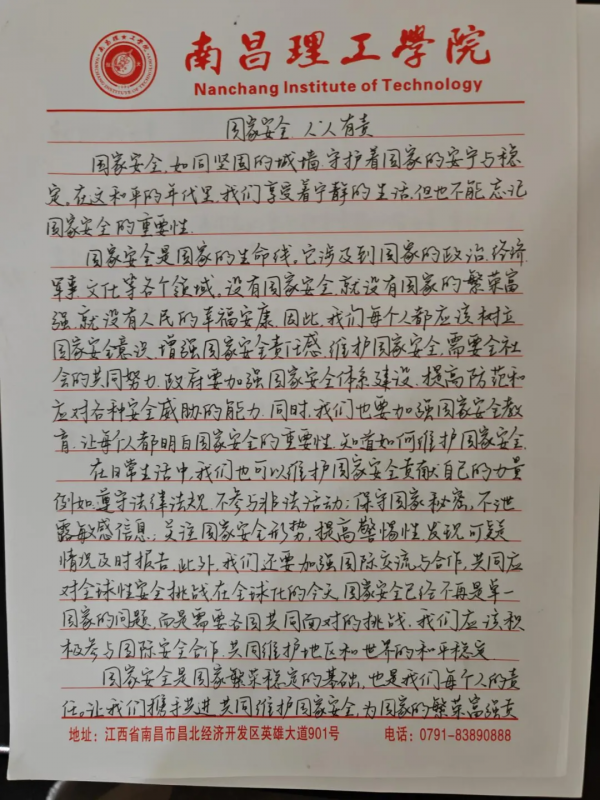 南昌理工學院
Nanchang Institute of Technology
国家安全 人人有责
国家安全,如同坚固的城墙,守护着国家的安宁与稳
定。在这和平的年代里,我们享受着宁静的生活,但也不能忘记
国家安全的重要性.
国家安全是国家的生命线。它涉及到国家的政治,经济
军事,文化等各个领域。没有国家安全,就没有国家的繁荣富
强,就没有人民的幸福安康.因此,我们每个人都应该树立
国家安全意识,增强国家安全责任感.维护国家安全,需要全社
会的共同努力.政府要加强国家安全体系建设,提高防范和
应对各种安全威胁的能力.同时,我们也要加强国家安全教
育,让每个人都明白国家安全的重要性,知道如何维护国家安全.
在日常生活中,我们也可以维护国家安全贡献自己的力量
例如,遵守法律法规,不参与非法活动;保守国家秘密,不泄
露敏感信息;关注国家安全形势,提高警惕性,发现可疑
情况及时报告.此外,我们还要加强国际交流与合作,共同应
对全球性安全挑战.在全球化的今天,国家安全已经不再是单一
国家的问题,而是需要各国共同面对的挑战.我们应该积
极参与国际安全合作,共同维护地区和世界的和平稳定
国家安全是国家繁荣稳定的基础,也是我们每个人的责
任。让我们携手共进,共同维护国家安全,为国家的繁荣富强贡
地址:江西省南昌市昌北经济开发区英雄大道901号 电话:0791-83890888